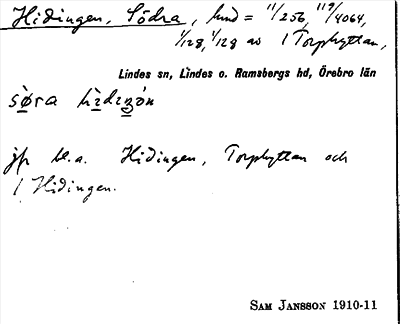 Hidingen, Södra, hmd = 11/256, 119/4064,
1/128, 1/128 av 1 Torphyttan,
Lindes sn, Lindes o. Ramsbergs hd, Örebro län
jfr bl.a. Hidingen, Torphyttan och
1 Hidingen.
SAM JANSSON 1910-11